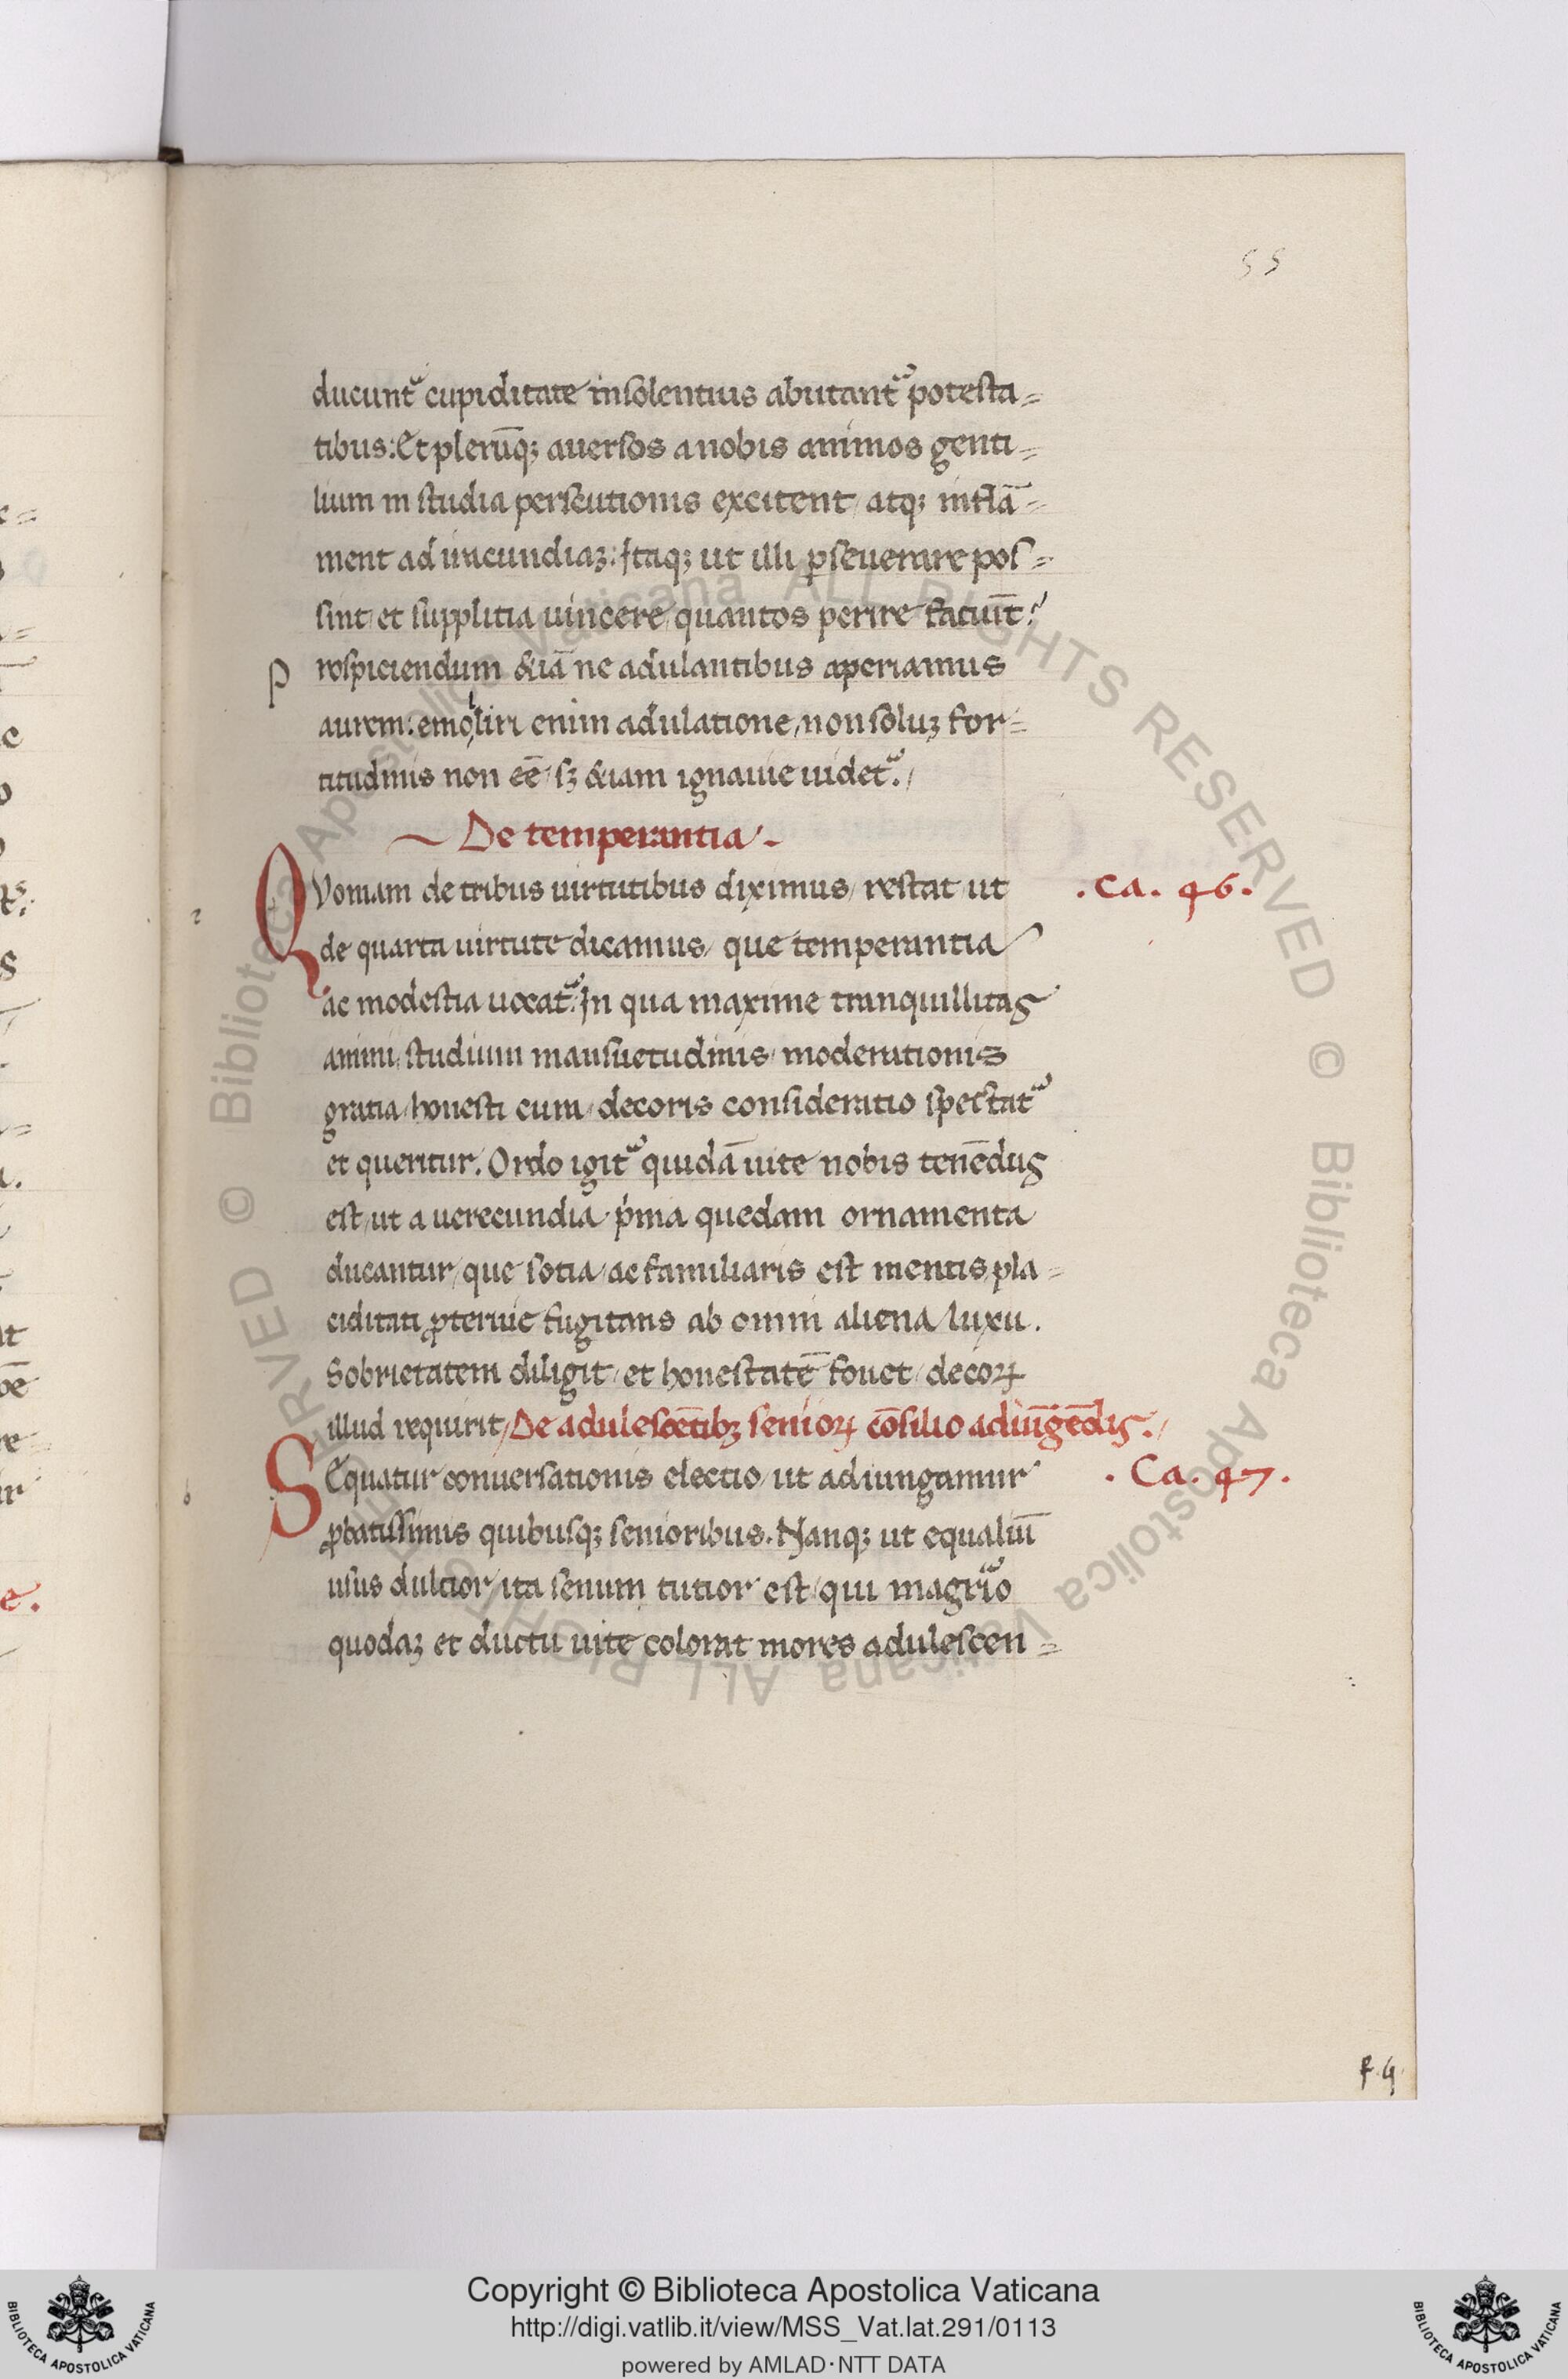 55
ducunt᷑ cupiditate insolentius abutant᷑ potesta=
tibus: Et plerūq; auersos a nobis animos genti=
lium in studia persecutionis excitent / atq; inflā=
ment ad iracundiaꝫ: Itaq; ut illi ꝑseuerare pos=
sint / et supplitia uincere / quantos perire faciūt?
P rospiciendum &iā ne adulantibus aperiamus
aurem: emolliri enim adulatione / non soluꝫ for=
titudinis non eē / sꝫ &iam ignauie uidet᷑. /
De temperantia.
QVoniam de tribus uirtutibus diximus / restat ut
. Ca. 46.
de quarta uirtute dicamus / que temperantia
ac modestia uocat᷑. In qua maxime tranquillitas
animi / studium mansuetudinis / moderationis
gratia / honesti cum / decoris consideratio spectat᷑
et queritur. Ordo igit᷑ quidā uite nobis tenēdus
est / ut a uerecundia p̍ma quedam ornamenta
ducantur / que sotia / ac familiaris est mentis pla=
ciditati ꝓteruie fugitans ab omni aliena / luxu.
Sobrietatem diligit / et honestatē fouet / decoꝝ
illud requirit / De adulescētibꝫ senioꝝ cōsilio adiūgēdis. /
SEquatur conuersationis electio / ut adiungamur
. Ca. 47.
ꝓbatissimis quibusq; senioribus. Nanq; ut equaliū
usus dulcior / ita senum tutior est / qui magr̃io
quodaꝫ et ductu uite colorat mores adulescen=
f. 4
© Biblioteca Apostolica Vaticana ALL RIGHTS RESERVED
© Biblioteca Apostolica Vaticana ALL RIGHTS RESERVED
Copyright © Biblioteca Apostolica Vaticana
http://digi.vatlib.it/view/MSS_Vat.lat.291/0113
powered by AMLAD·NTT DATA
BIBLIOTECA APOSTOLICA VATICANA
BIBLIOTECA APOSTOLICA VATICANA